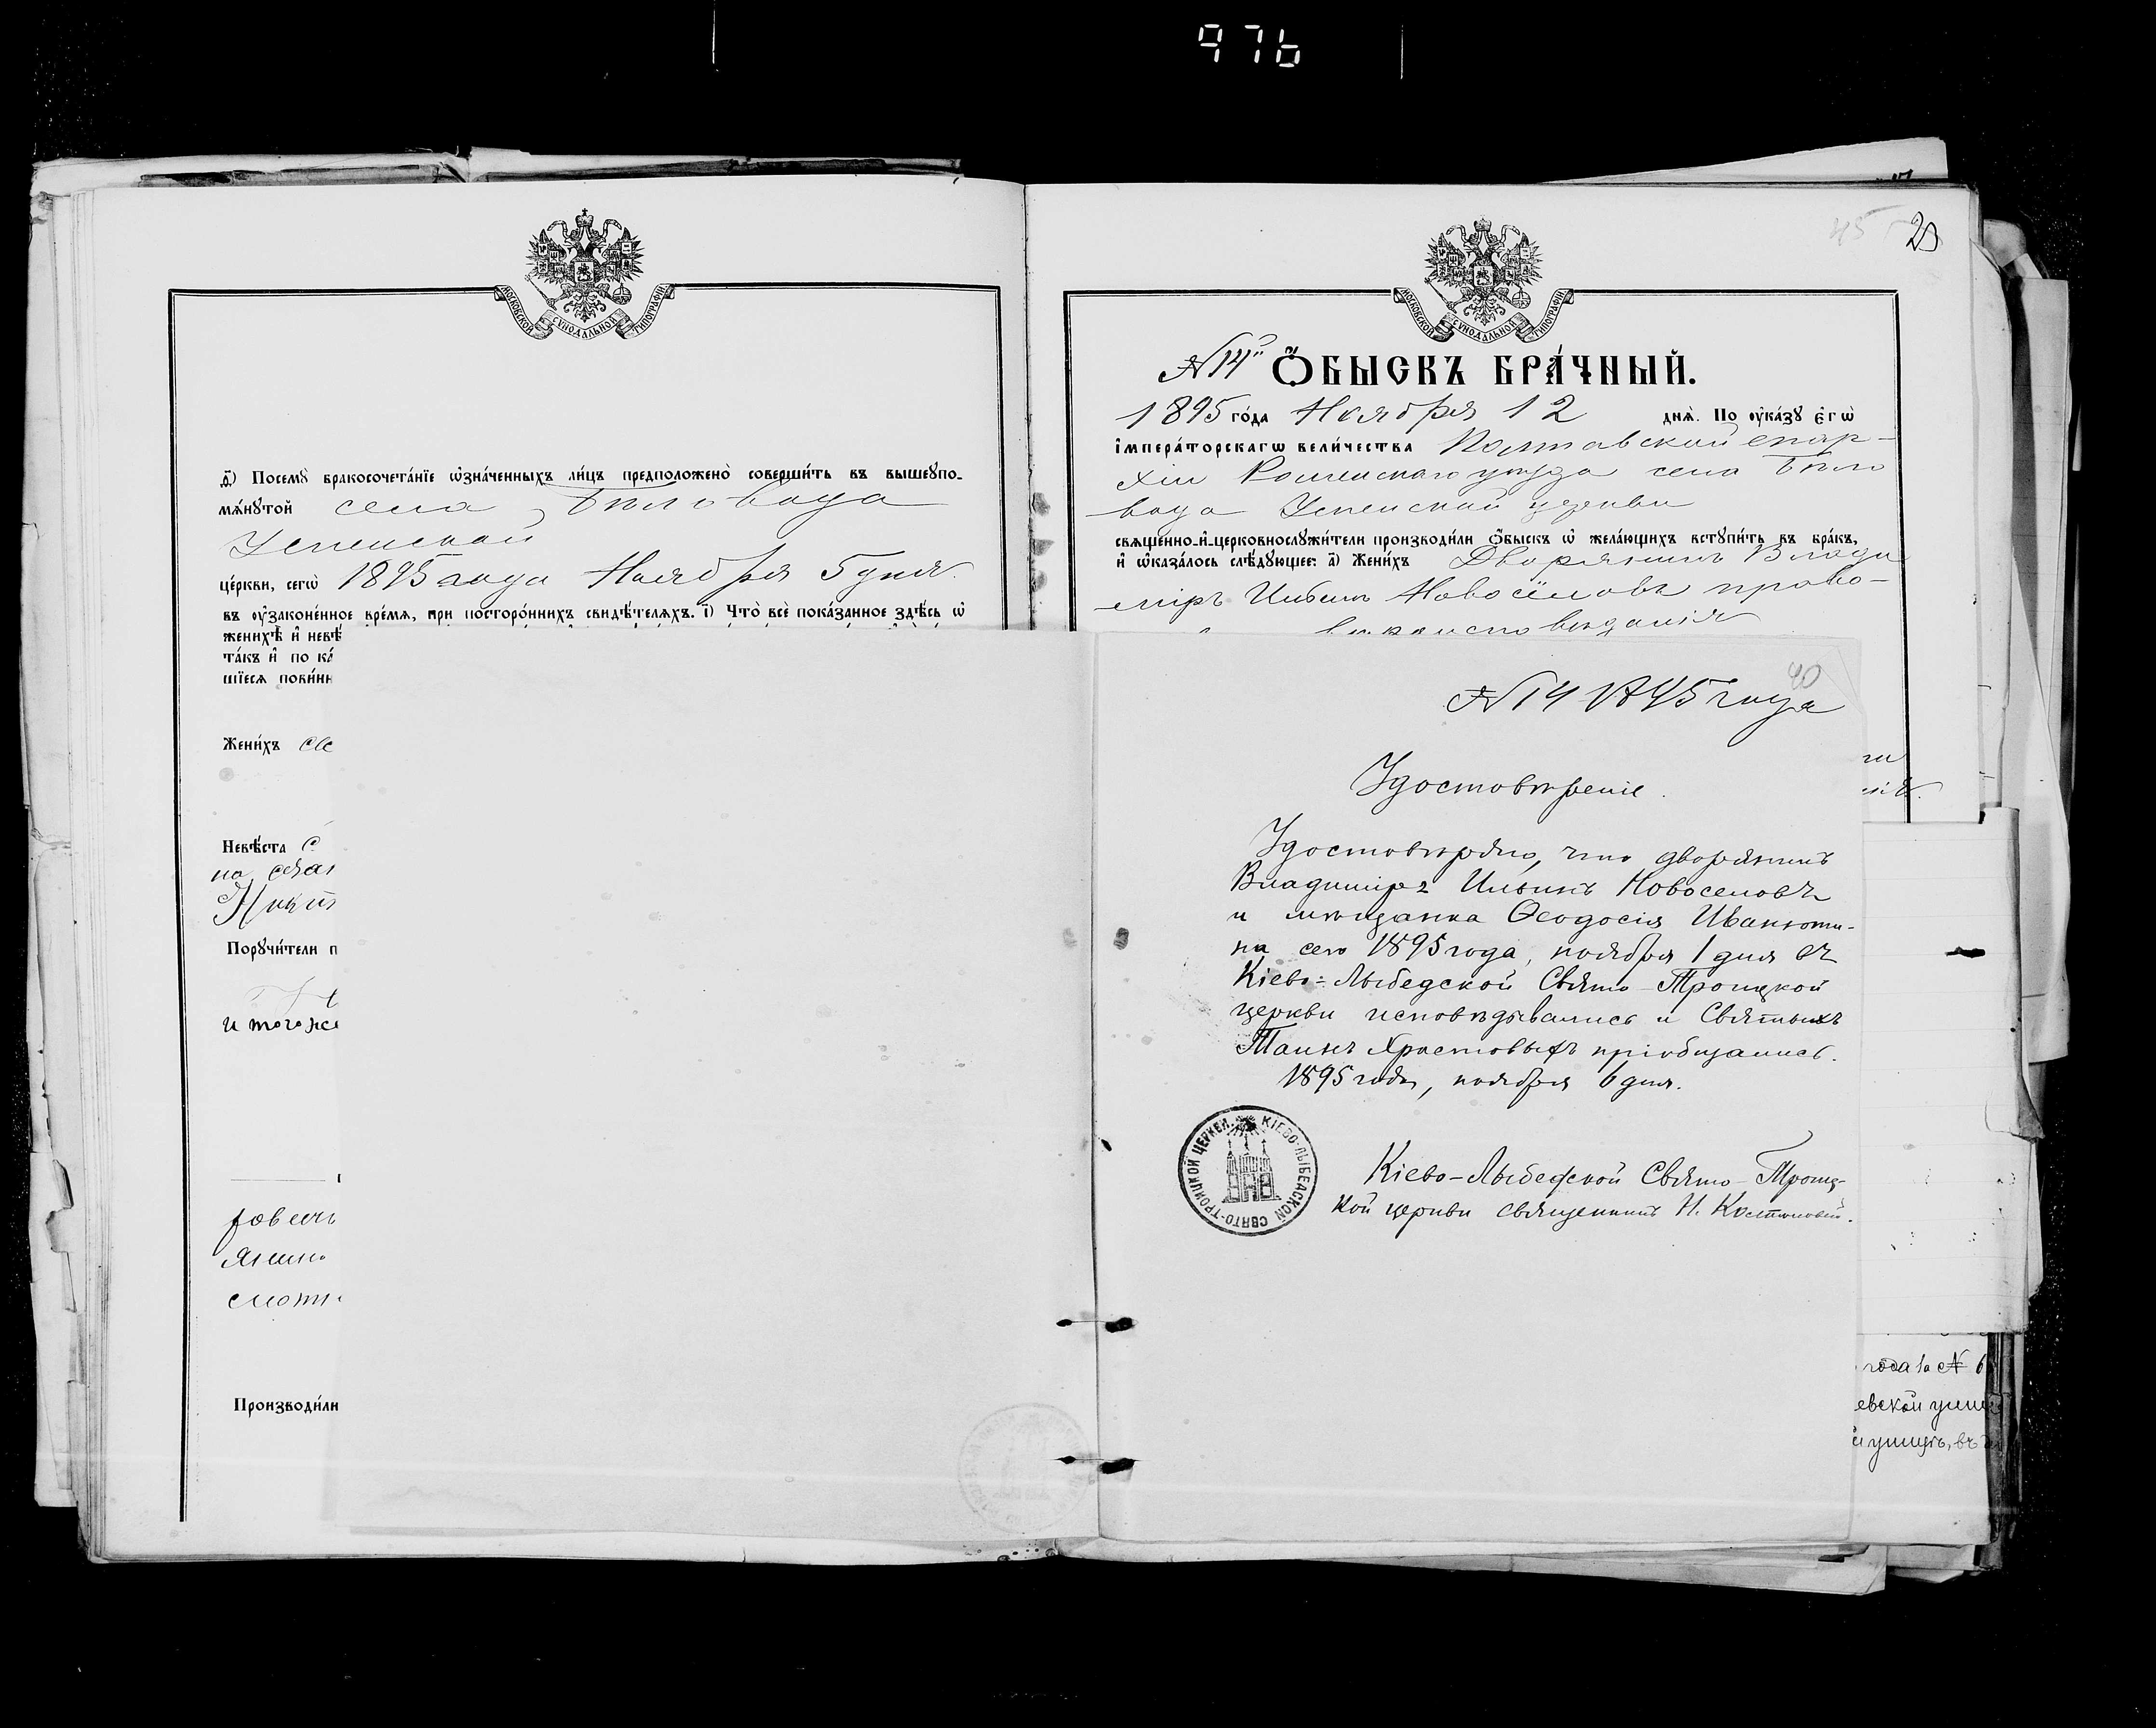 976
МОСКОВСКОЙ СѴНОДАЛЬНОЙ ТИПОГРАФІИ
д҃) Посемꙋ̀ бракосочета́нїе ѡ҆зна́ченныхъ ли́цъ предположено̀ соверши́ть въ вышеꙋпо-
мѧ́нꙋтой села Бѣловода
Успенской
це́ркви, сегѡ̀ 1895 года Ноября 5 дня
въ ᲂу҆зако́ненное вре́мѧ, при посторо́ннихъ свидѣ́телѧхъ. і҃) Что̀ всѐ пока́занное здѣ́сь ѡ҆
женихѣ̀ и҆ невѣ
та́къ и҆ по ка́
шїесѧ пови́нн
Жени́хъ
Невѣ́ста С
на
Порꙋчи́тели п
и тогоже
Производи́ли
45 20
МОСКОВСКОЙ СѴНОДАЛЬНОЙ ТИПОГРАФІИ
№ 14й Ѻ҆́БЫСКЪ БРА́ЧНЫЙ.
1895 го́да Ноября 12 днѧ̀. По ᲂу҆ка́зꙋ Є҆гѡ̀
І҆мпера́торскагѡ вели́чества Полтавской епар-
хіи Роменскаго уѣзда села Бѣло
вода Успенской церкви
свѧще́нно-и҆-церковнослꙋжи́тели производи́ли Ѻ҆́быскъ ѡ҆ жела́ющихъ встꙋпи́ть въ бра́къ,
и҆ ѡ҆каза́лось слѣ́дꙋющее: а҃) Жени́хъ Дворянинъ Влади
міръ Ильинъ Новосёловъ право-
вѣроисповѣданія
40
№ 14 1895 года
Удостовѣреніе.
Удостовѣряю, что дворянинъ
Владиміръ Ильинъ Новоселовъ
и мѣщанка Ѳеодосія Иванюти-
на сего 1895 года, ноября 1 дня въ
Кіево-Лыбедской Свято-Троицкой
церкви исповѣдывались и Святыхъ
Таинъ Христовыхъ пріобщались.
1895 года, ноября 6 дня.
КІЕВО-ЛЫБЕДСКОЙ СВЯТО-ТРОИЦКОЙ ЦЕРКВИ
Кіево-Лыбедской Свято-Троиц-
кой церкви священникъ Н.
года за № 6
евской